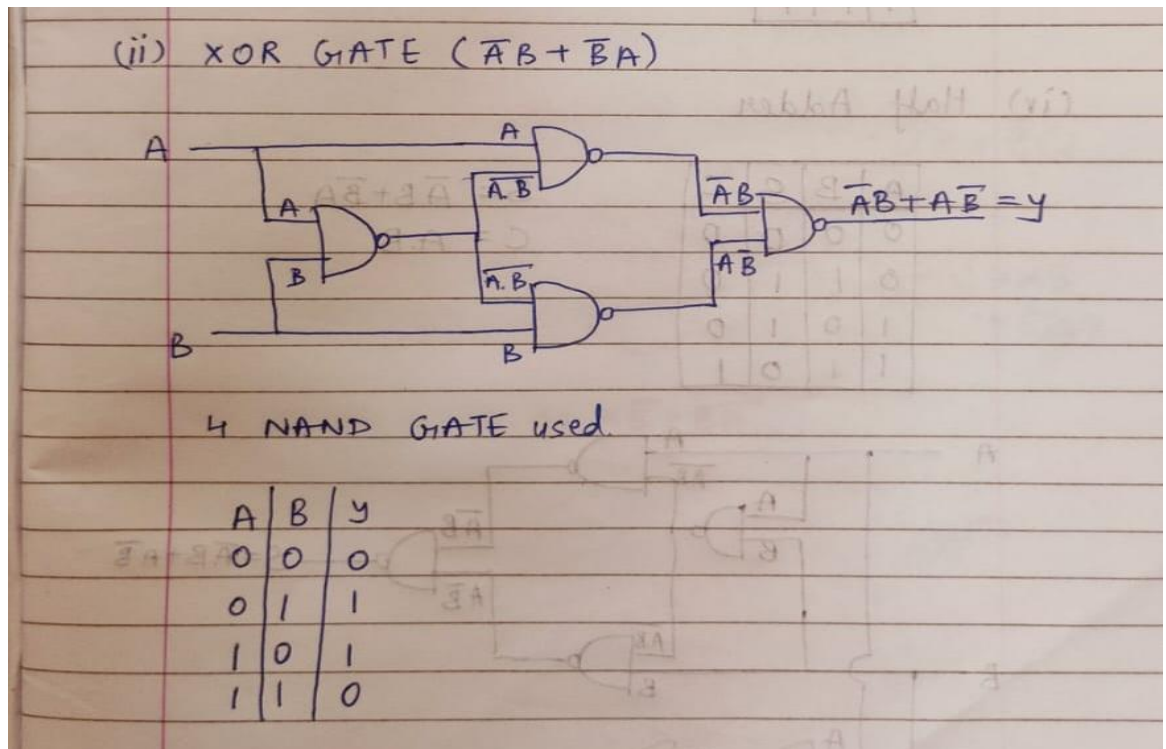 (ii) XOR GATE (A̅B + B̅A)
A
A
A̅.̅B̅
A
B
A̅.̅B̅
B
B
A̅B
AB̅
A̅B + AB̅ = y
4 NAND GATE used.
A B y
0 0 0
0 1 1
1 0 1
1 1 0
(iv) Half Adder